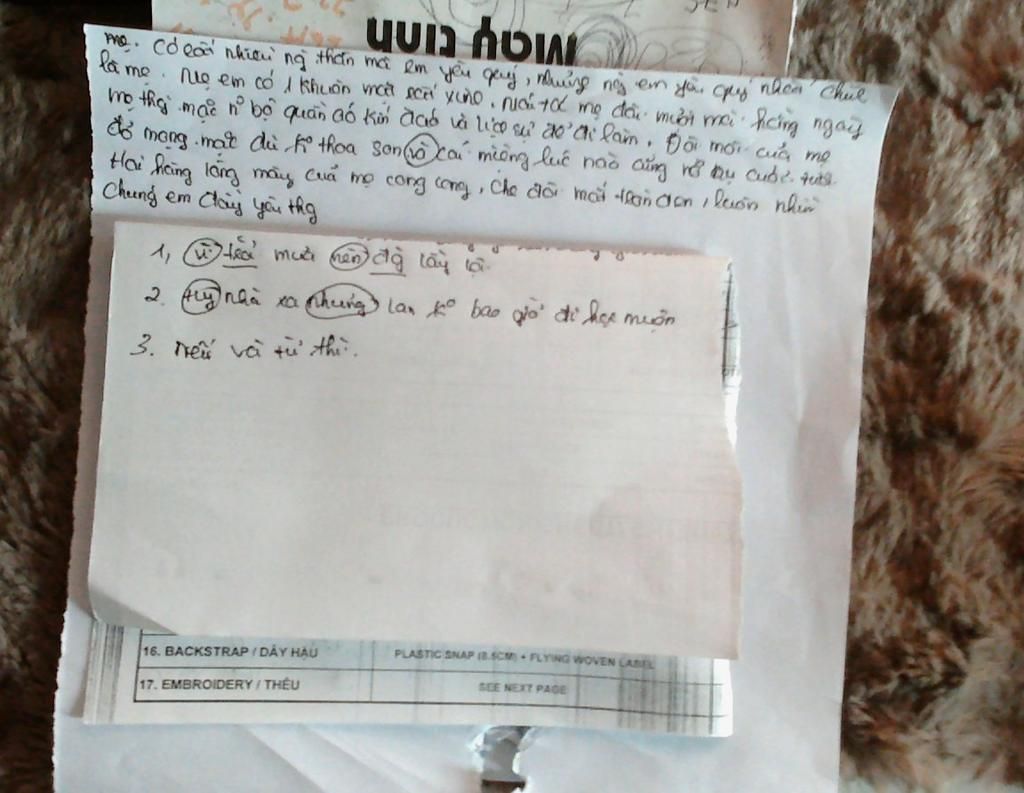 máy tính
mẹ. Có rất nhiều ng thân mà em yêu quý, nhưng ng em yêu quý nhất
là mẹ. Mẹ em có 1 khuôn mặt rất xinh. mẹ hằng ngày
mẹ mặc bộ quần áo kín đáo và lịch sự để đi làm. Đôi môi của mẹ
đỏ mọng mặc dù ko thoa son và cái miệng lúc nào cũng nở nụ cười
Hai hàng lông mày của mẹ cong cong, che đôi mắt, luôn nhìn
chúng em đầy yêu thg
1, vì trời mưa nên đg lầy lội.
2. tuy nhà xa nhưng lan ko bao giờ đi học muộn
3. nếu và từ thì.
16. BACKSTRAP / DÂY HẬU PLASTIC SNAP (8.5CM) + FLYING WOVEN LABEL
17. EMBROIDERY / THÊU SEE NEXT PAGE